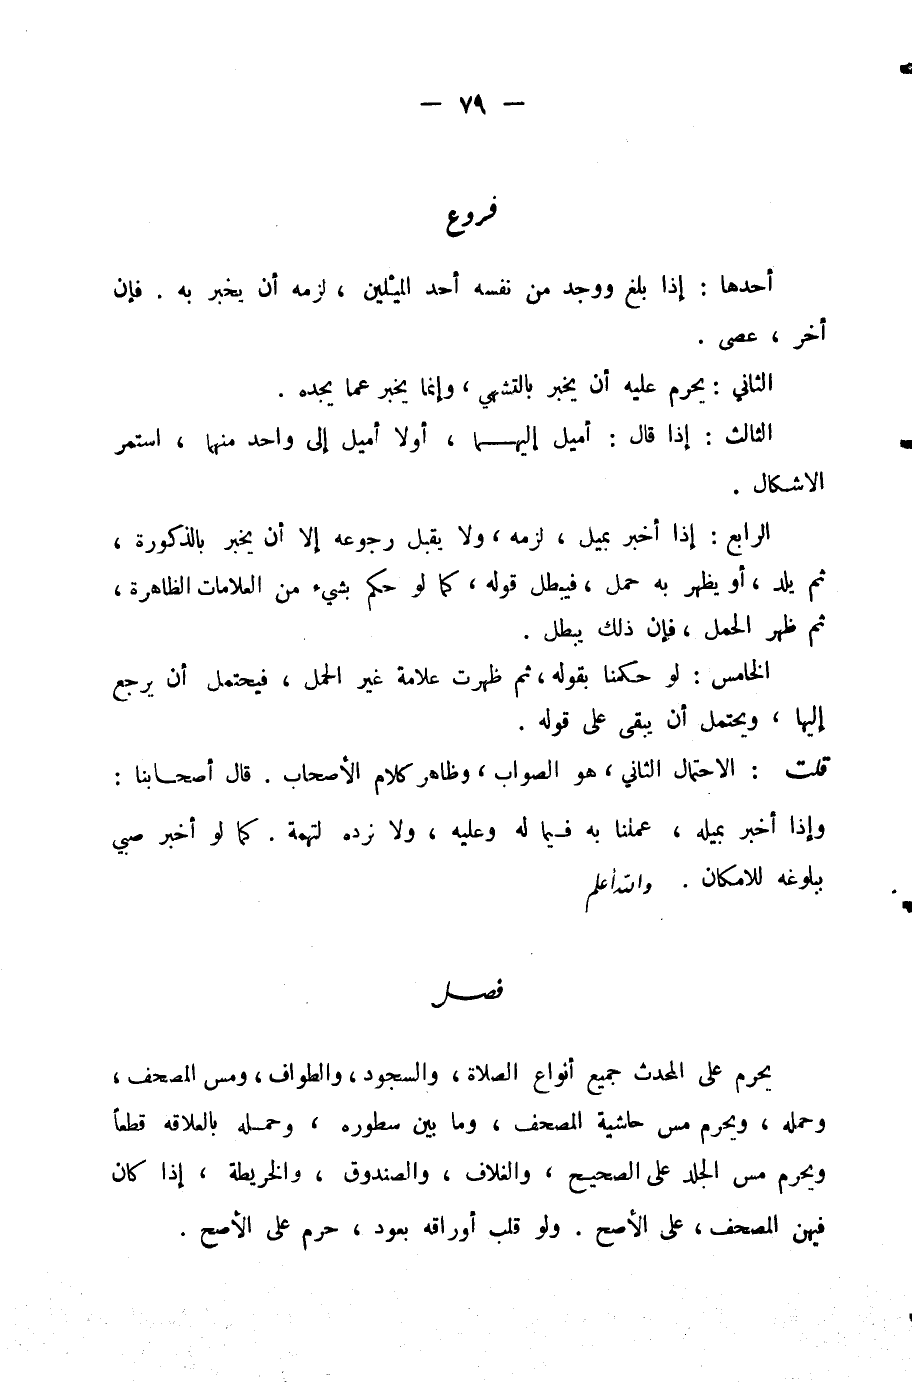 — ٧٩ —
فروع
أحدها : إذا بلغ ووجد من نفسه أحد الميلين ، لزمه أن يخبر به . فإن
أخر ، عصى .
الثاني : يحرم عليه أن يخبر بالتشهي ، وإنما يخبر عما يجده .
الثالث : إذا قال : أميل إليهما ، أولا أميل إلى واحد منهما ، استمر
الاشكال .
الرابع : إذا أخبر بميل ، لزمه ، ولا يقبل رجوعه إلا أن يخبر بالذكورة ،
ثم يلد ، أو يظهر به حمل ، فيبطل قوله ، كما لو حكم بشيء من العلامات الظاهرة ،
ثم ظهر الحمل ، فإن ذلك يبطل .
الخامس : لو حكمنا بقوله ، ثم ظهرت علامة غير الحمل ، فيحتمل أن يرجع
إليها ، ويحتمل أن يبقى على قوله .
قلت : الاحتمال الثاني ، هو الصواب ، وظاهر كلام الأصحاب . قال أصحابنا :
وإذا أخبر بميله ، عملنا به فيما له وعليه ، ولا نرده لتهمة . كما لو أخبر صبي
ببلوغه للامكان . والله أعلم
فصل
يحرم على المحدث جميع أنواع الصلاة ، والسجود ، والطواف ، ومس المصحف ،
وحمله ، ويحرم مس حاشية المصحف ، وما بين سطوره ، وحمله بالعلاقه قطعاً
ويحرم مس الجلد على الصحيح ، والغلاف ، والصندوق ، والخريطة ، إذا كان
فيهن المصحف ، على الأصح . ولو قلب أوراقه بعود ، حرم على الأصح .